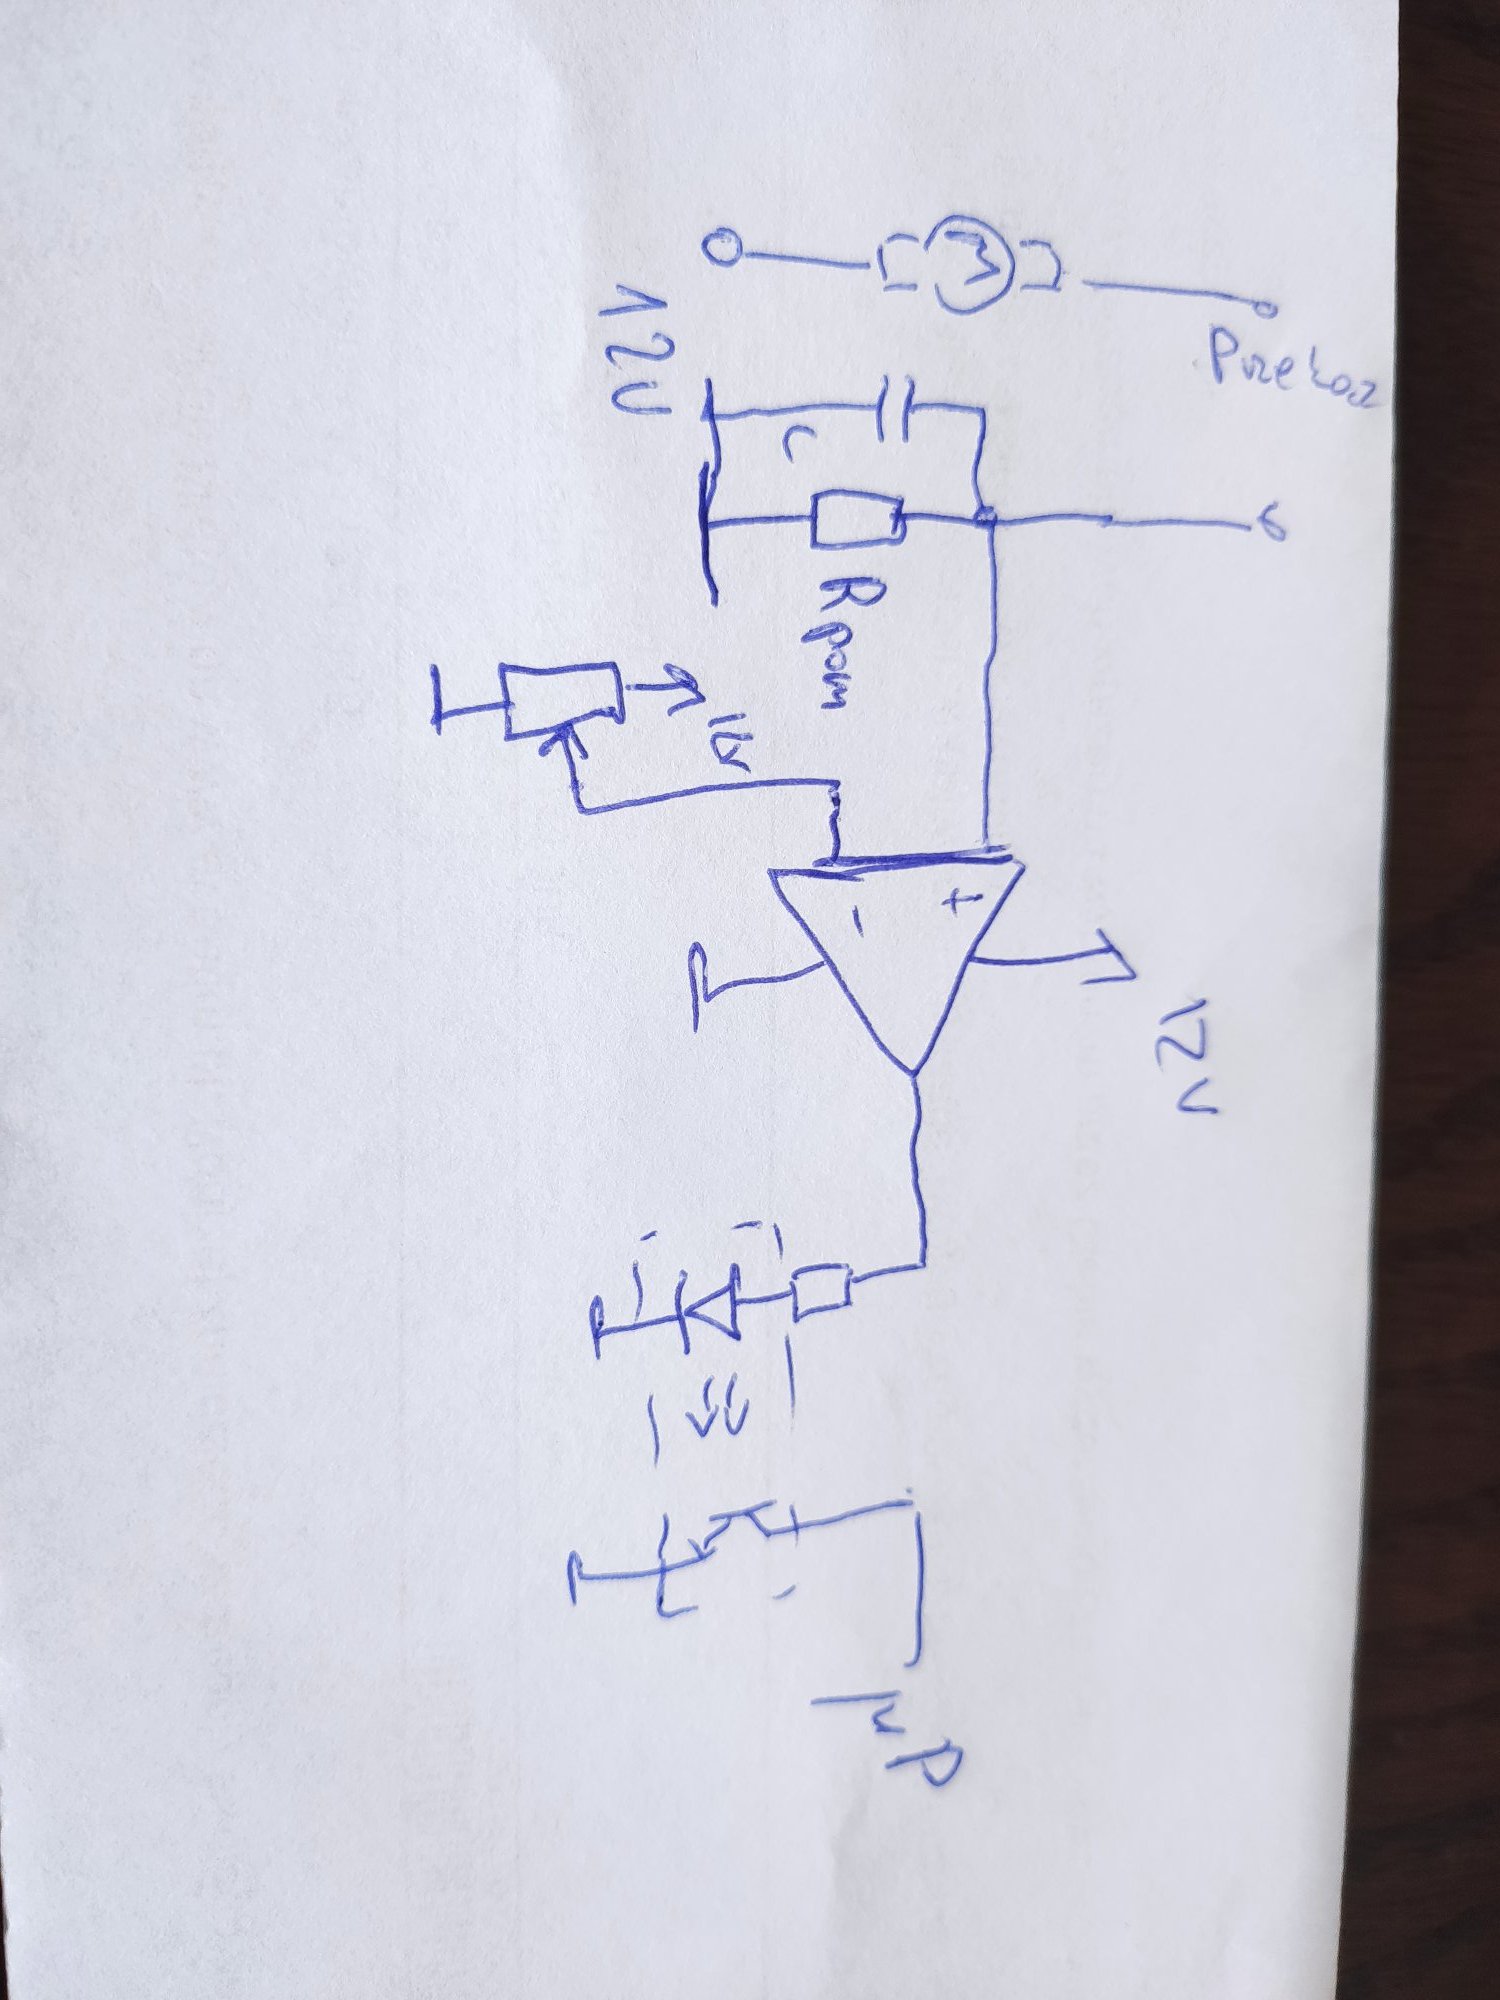 Przekaz
12V
C
Rpom
1V
+
-
12V
µP